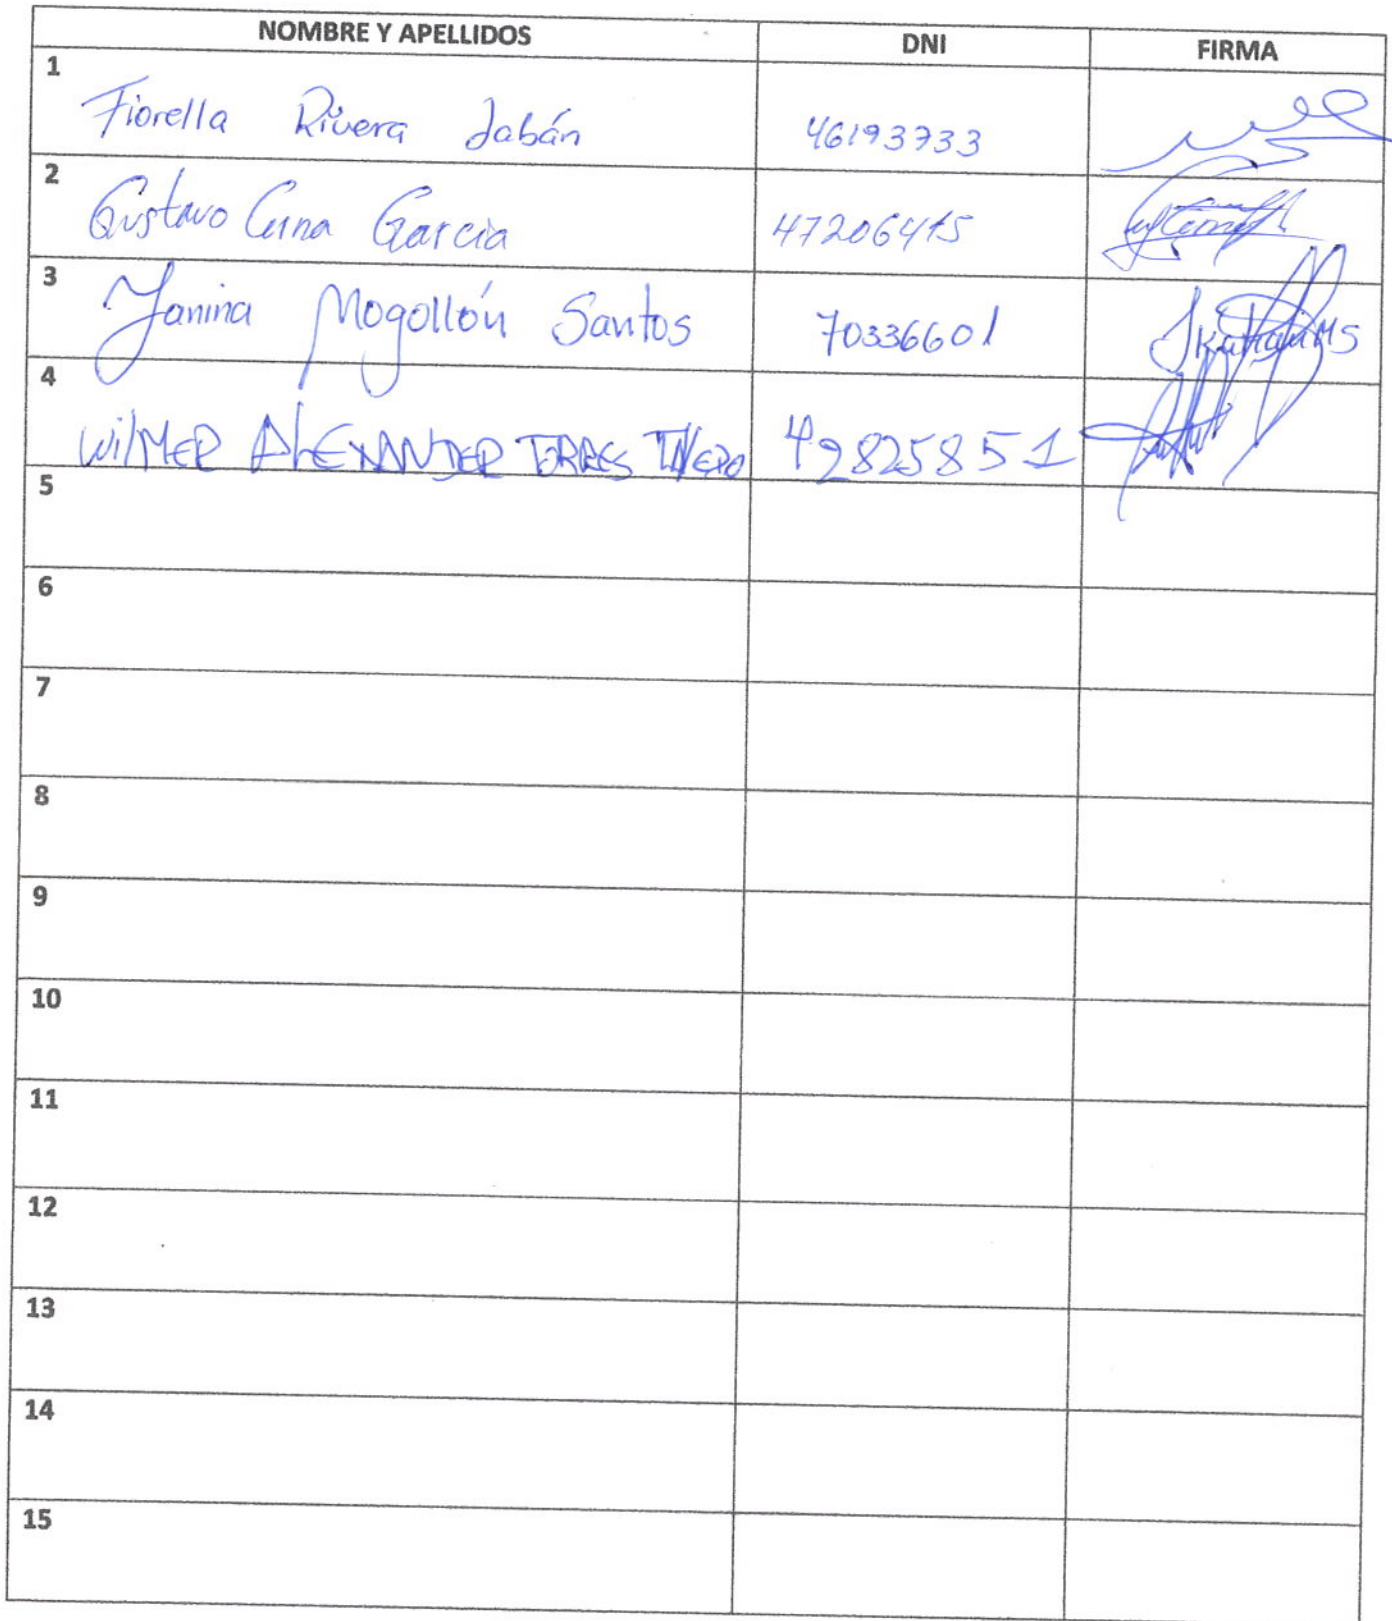 NOMBRE Y APELLIDOS DNI FIRMA
1
Fiorella Rivera Jabán 46193733
2
Gustavo Garcia 47206415
3
Yanina Mogollón Santos 70336601
4
WILMER ALEXANDER TORRES 42825851
5
6
7
8
9
10
11
12
13
14
15